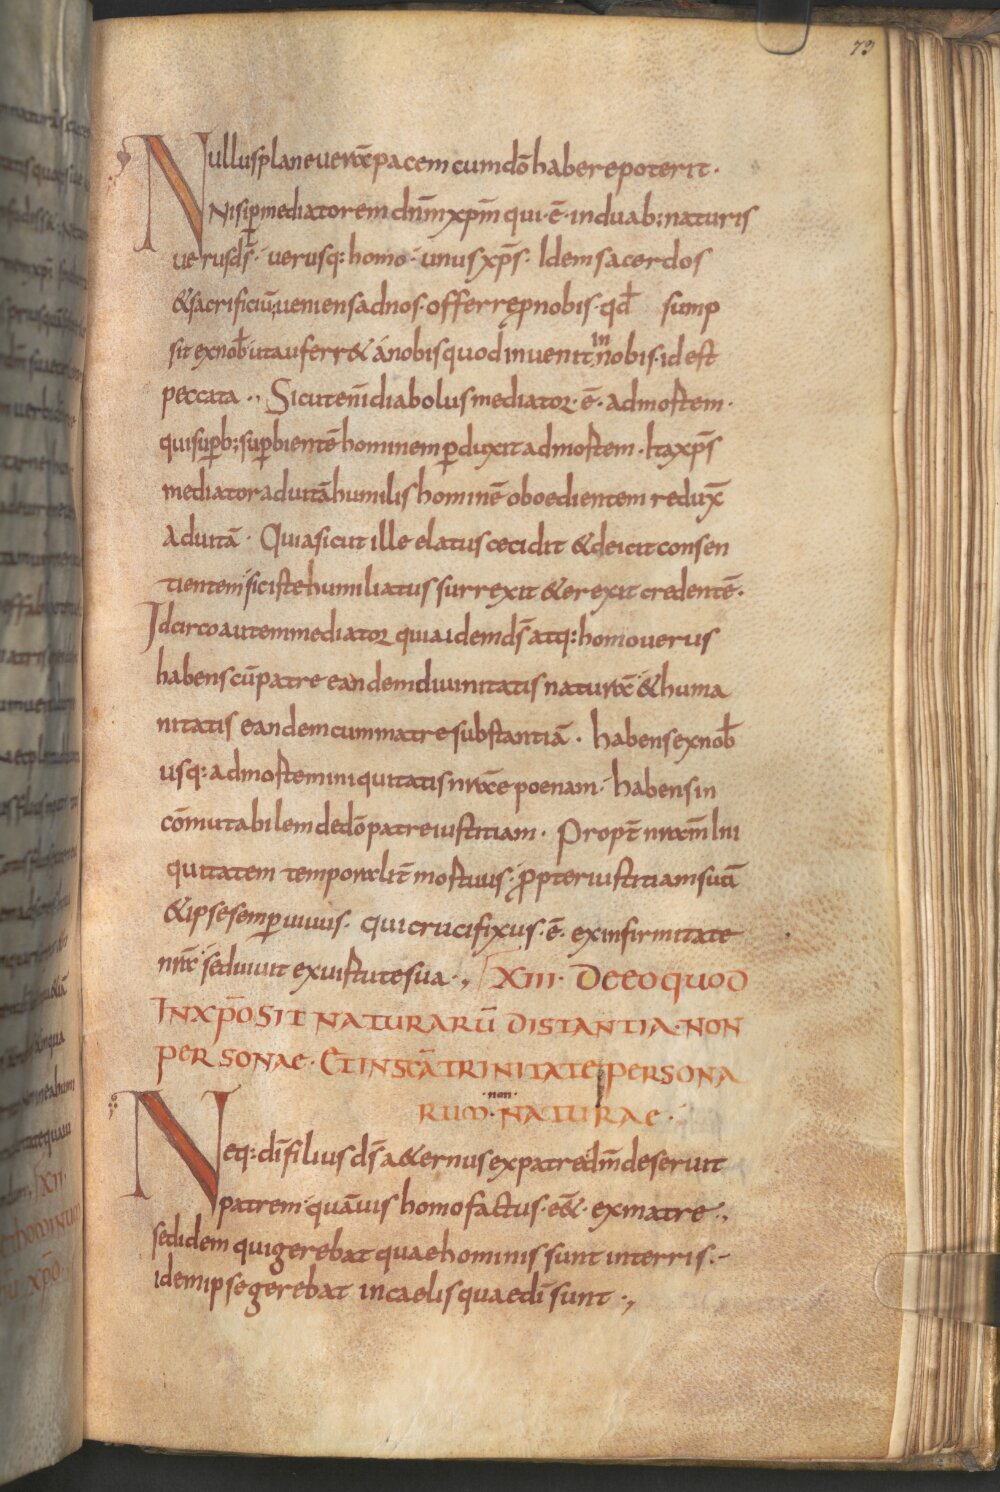 73
Nullus plane veram pacem cum dō habere poterit ·
Nisi ꝑ mediatorem dn̄m xp̄m qui · ē · in duab; naturis
verus ds̄ · verusq: homo · unus xp̄s · Idem sacerdos
& sacrificiū; veniens ad nos · offerre ꝓ nobis · qd̄ sump
sit ex nob̄ ut auferr& á nobis quod invenit in nobis · id est
peccata ·, Sicut eni̅ diabolus mediator · ē · ad mortem ·
qui suꝑb; suꝑbientē hominem ꝑduxit ad mortem · Ita xp̄s
mediator ad vitā humilis hominē oboedientem redux̄
ad vitā · Quia sicut ille elatus cecidit & deicit consen
tientem sic iste humiliatus surrexit & erexit credentē ·
Idcirco autem mediator quia idem ds̄ atq: homo verus
habens cū patre eandem divinitatis naturā · & huma
nitatis eandem cum matre substantiā · habens ex nob̄
usq: ad mortem iniquitatis nr̄ae poenam · habens in
cōmutabilem de dō patre iustitiam · Propt̄ nr̄am Ini
quitatem temporalit̄ mortuus · ꝓpter iustitiam suā
& ipse semꝑ vivus · qui crucifixus · ē · ex infirmitate
nr̄a · sed vivit ex virtute sua ·, XIII · De eo quod
IN XP̄O SIT NATURARŪ DISTANTIA · NON
PERSONAE · ET IN SC̄A TRINITATE PERSONA
· non ·
RUM · NATURAE ·
Neq: dī filius ds̄ a&ernus ex patre dn̄m deseruit
patrem · quāvis homo factus · e&· ex matre ·,
sed idem qui gerebat quae hominis sunt in terris · -
idem ipse gerebat in caelis quae dī sunt ·,